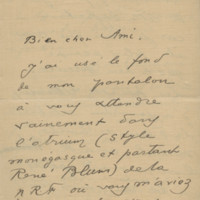 Bien cher Ami.
J'ai usé le fond
de mon pantalon
à vous attendre
vainement dans
l'atrium (style
monégasque et partant
René Blum) de la
NRF où vous m'aviez